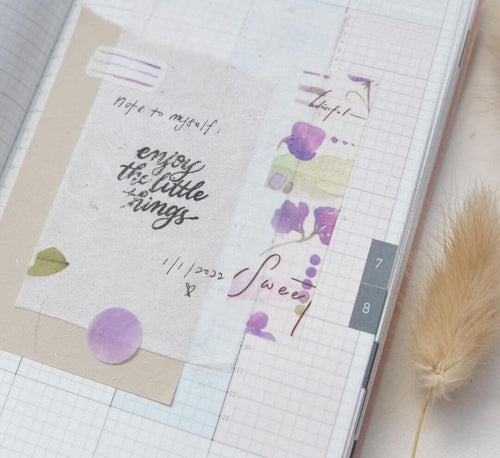 note to myself:
enjoy
the little
things
1/1/2022
Sweet
7
8